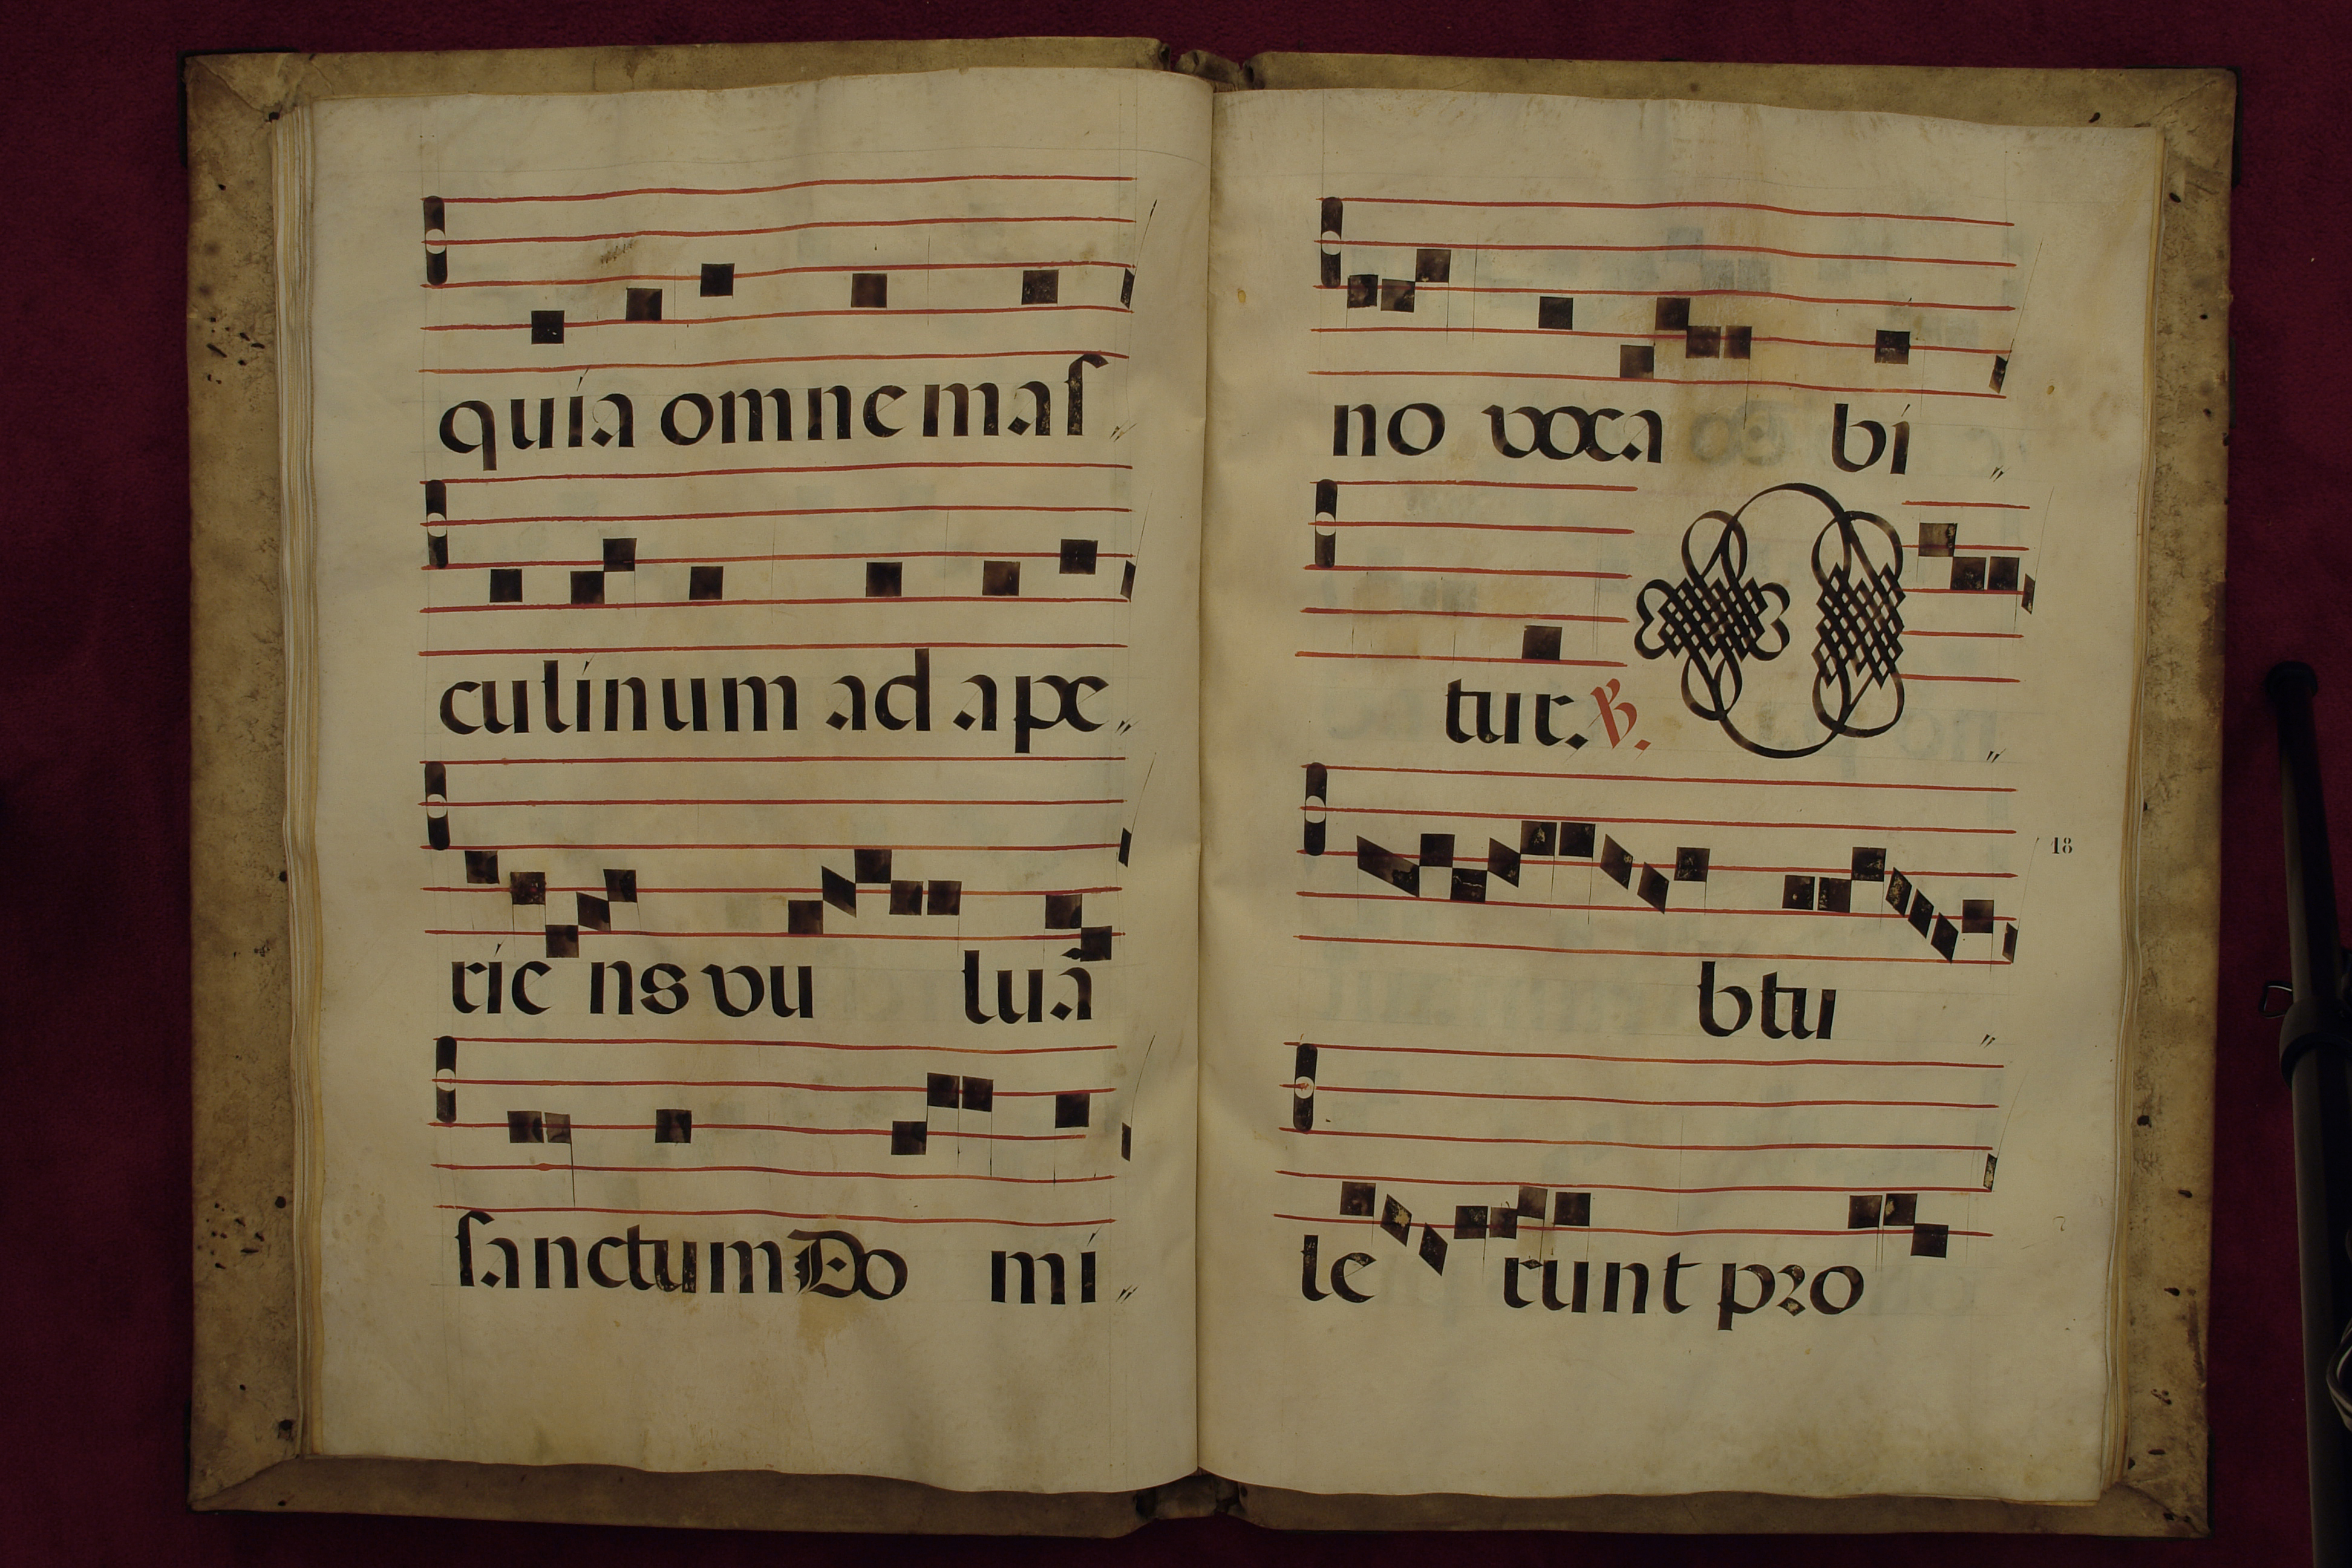 quía omne maſ
culínum ad ape
ríe ns vu luã
ſanctum Do mí
no voca bí
tur. ℟. O
18
btu
le runt pꝛo